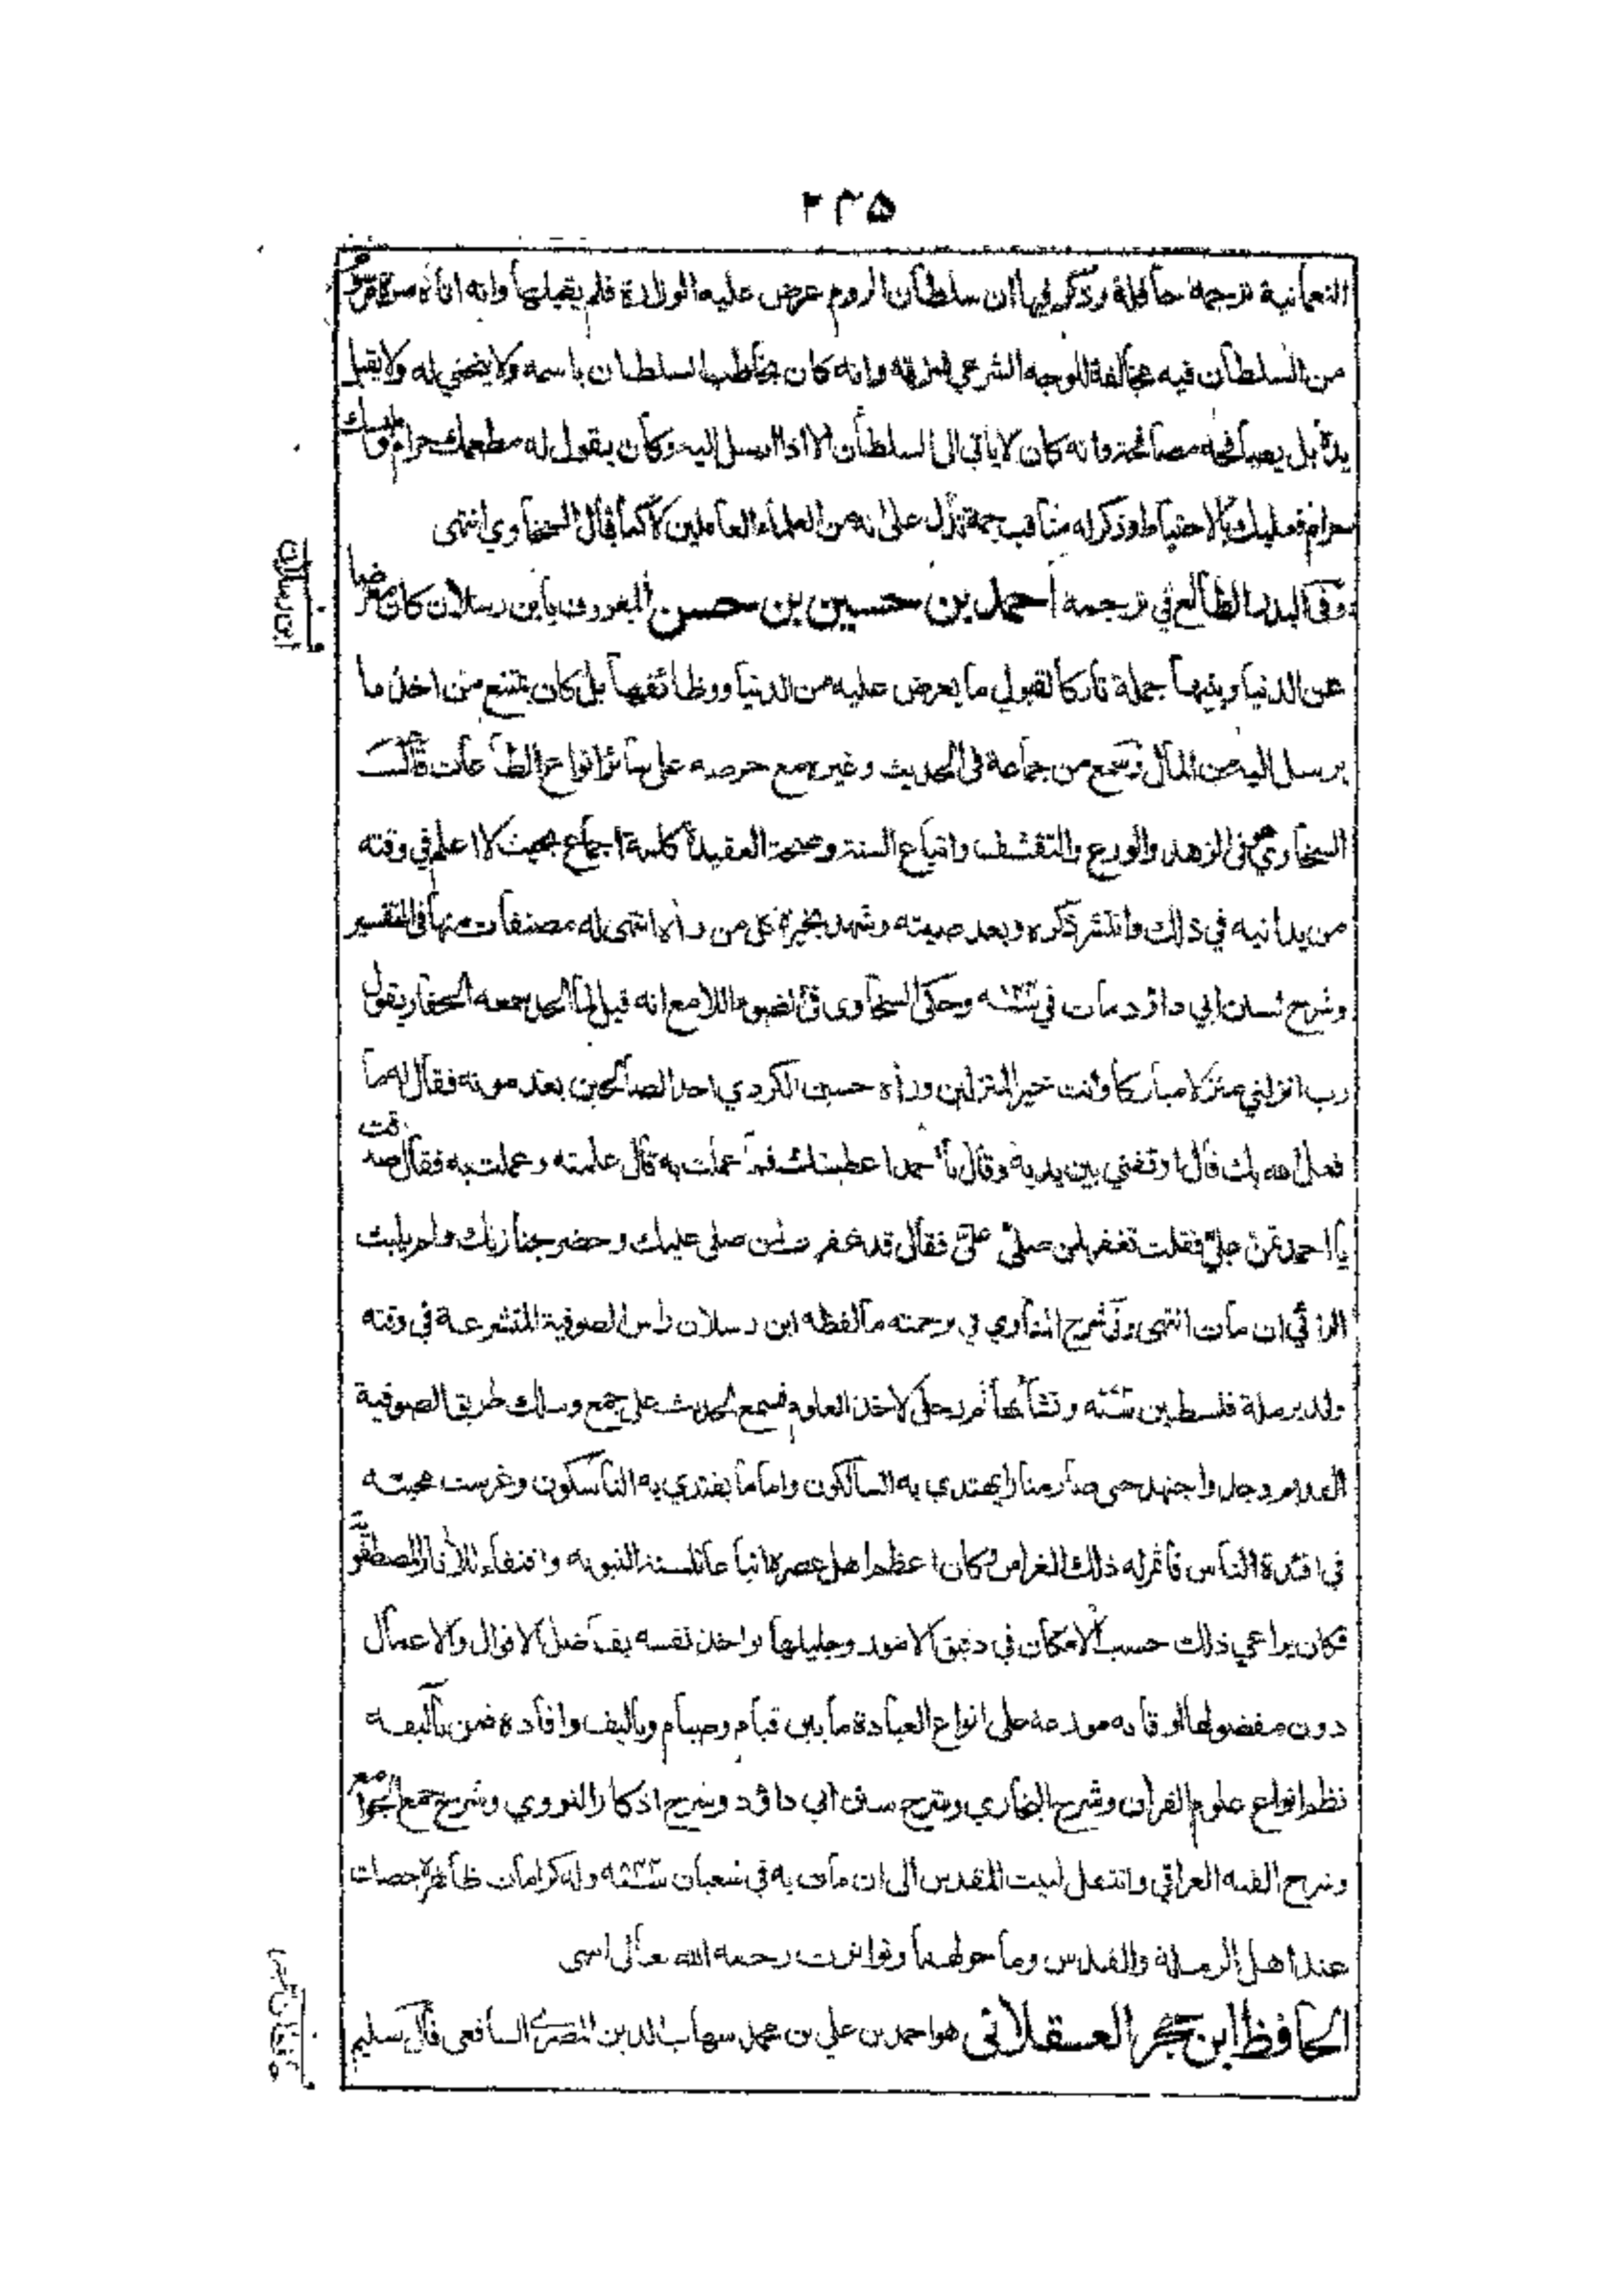 ٢٣٥
النعمانية ترجمة حافلة وذكر فيها ان سلطان الروم عرض عليه الوزارة فلم يقبلها وانه اتاه مرة مرسوم
من السلطان فيه مخالفة للوجه الشرعي فمزقه وانه كان يخاطب السلطان باسمه ولا ينحني له ولا يقبل
يده بل يصافحه مصافحة وانه كان لا ياتي الى السلطان الا اذا ارسل اليه وكان يقول له مطعمك حرام وملبسك
حرام فعليك بالاحتياط وذكر له مناقب جمة تدل على انه من العلماء العاملين لا كما قال السخاوي انتهى
وفى البدر الطالع في ترجمة احمد بن حسين بن حسن المعروف بابن رسلان كان معرضا
عن الدنيا وبنيها جملة تاركا لقبول ما يعرض عليه من الدنيا ووظائفها بل كان يمتنع من اخذ ما
يرسل اليه من المال وسمع من جماعة فى الحديث وغيره مع حرصه على سائر انواع الطاعات قال
السخاوي هو فى الزهد والورع والتقشف واتباع السنة وصحة العقيدة كلمة اجماع بحيث لا اعلم في وقته
من يدانيه في ذلك وانتشر ذكره وبعد صيته وشهد بخيره كل من رأه انتهى له مصنفات منها فى التفسير
وشرح سنن ابي داؤد مات في سنة وحكى السخاوى فى الضوء اللامع انه قيل لما الحد سمعه الحفار يقول
رب انزلني منزلا مباركا وانت خير المنزلين ورأه حسين الكردي احد الصالحين بعد موته فقال له ما
فعل الله بك قال اوقفني بين يديه وقال يا احمد اعطيتك فما عملت به قال علمته وعملت به فقال صدقت
يا احمد تمن علي فقلت تغفر لمن صلى علي فقال قد غفرت لمن صلى عليك وحضر جنازتك ولم يلبث
الرائي ان مات انتهى وفى شرح المناوي في ترجمته ما لفظه ابن رسلان راس الصوفية المتشرعة في وقته
ولد برملة فلسطين سنة ونشأ بها ثم رحل لاخذ العلوم فسمع الحديث على جمع وسلك طريق الصوفية
القويم وجد واجتهد حتى صار منارا يهتدي به السالكون واماما يقتدي به الناسكون وغرست محبته
فى افئدة الناس فاثمر له ذلك الغراس وكان اعظم اهل عصره اتباعا للسنة النبويه واقتفاء للآثار المصطفوية
فكان يراعي ذلك حسب الامكان في دقيق الامور وجليلها واخذ نفسه بفاضل الاقوال والاعمال
دون مفضولها اوقاته موزعة على انواع العبادة ما بين قيام وصيام وتاليف وافادة فمن تآليفه
نظم انواع علوم القرآن وشرح البخاري وشرح سنن ابي داؤد وشرح اذكار النووي وشرح جمع الجوامع
وشرح الفية العراقي وانتقل لبيت المقدس الى ان مات به في شعبان سنة وله كرامات ظاهرة حصلت
عند اهل الرملة والقدس وما حولهما وتواترت رحمه الله تعالى انتهى
الحافظ ابن حجر العسقلانى هو احمد بن علي بن محمد شهاب الدين المصرى الشافعى قال سليم
ابن رسلان